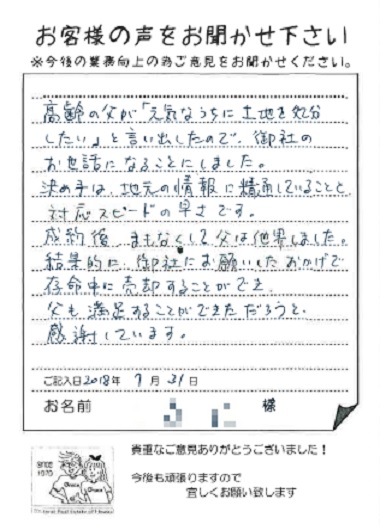 お客様の声をお聞かせ下さい
※今後の業務向上の為ご意見をお聞かせください。
高齢の父が「元気なうちに土地を処分
したい」と言い出したので、御社の
お世話になることにしました。
決め手は、地元の情報に精通していることと、
対応スピードの早さです。
成約後、まもなくして父は他界しました。
結果的に、御社にお願いしたおかげで
存命中に売却することができ、
父も満足することができただろうと、
感謝しています。
ご記入日2018年 7月 31日
お名前 様
SINCE
1970
貴重なご意見ありがとうございました！
今後も頑張りますので
宜しくお願い致します